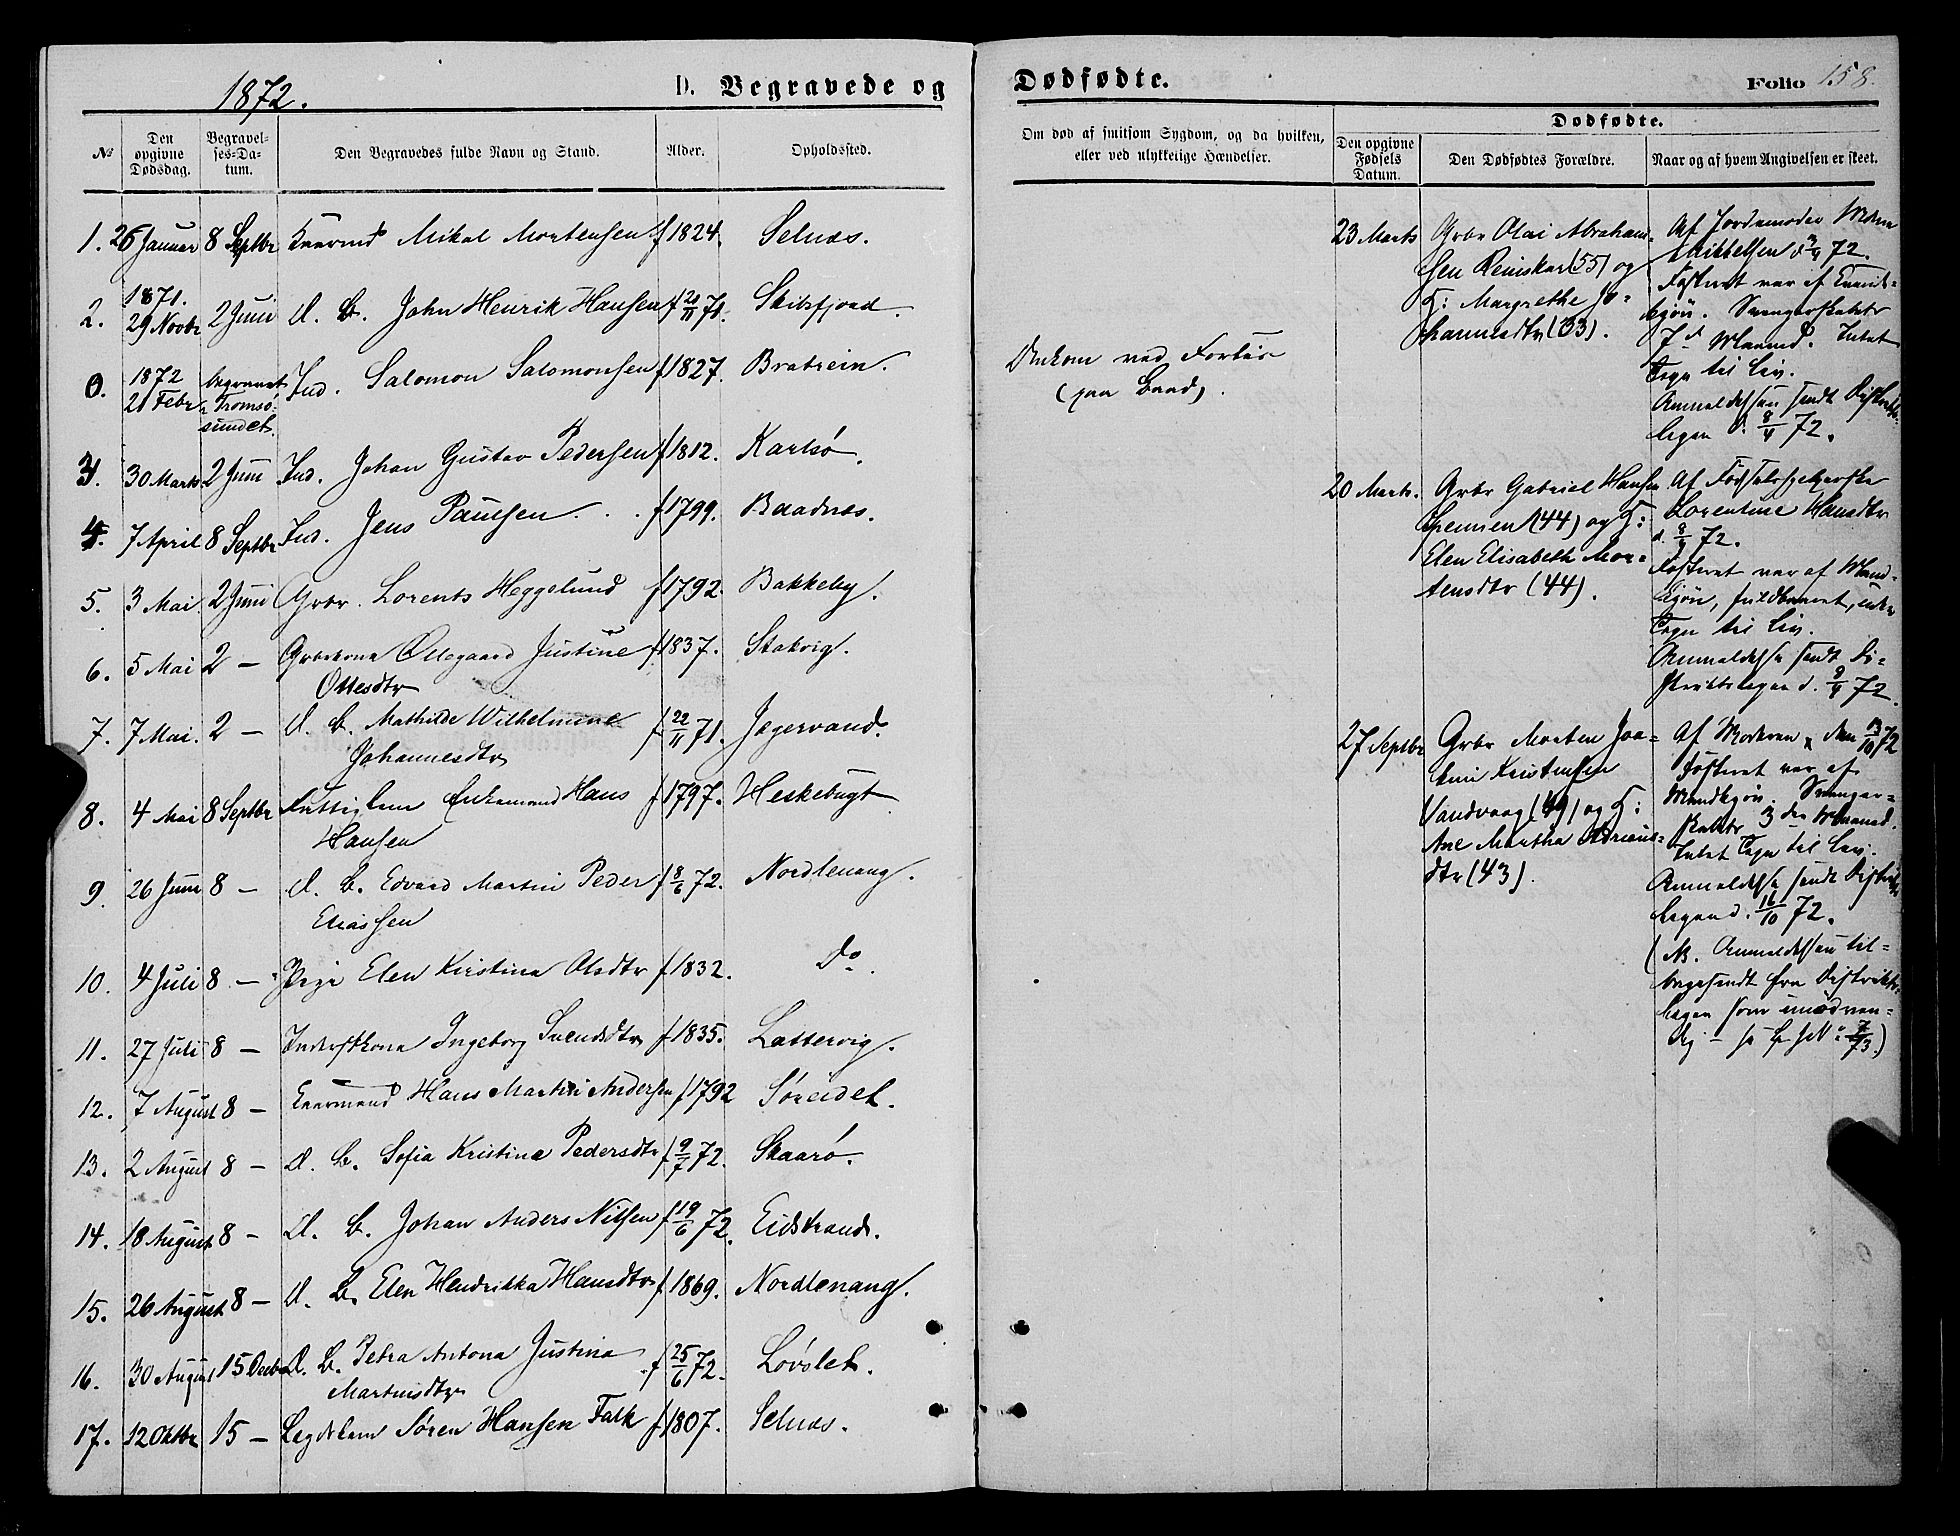 1872.
D. Begravede og
№
Den opgivne Dødsdag.
Begravelses-Datum.
Den Begravedes fulde Navn og Stand.
Alder.
Opholdssted.
1. 26 Januar 8 Septbr Mikal Mortensen f 1824. Selnæs.
2. 1871. 29 Novbr 2 Juni d. B. John Henrik Hansen f 20/11 71. Skibsfjord.
0. 1872 21 Febr begravet i Tromsø-sundet. Ind. Salomon Salomonsen f 1827. Bratrein.
3. 30 Marts 2 Juni Ind. Johan Gustav Pedersen f 1812. Karlsø.
4. 7 April 8 Septbr Ind. Jens Paulsen f 1799. Baadnæs.
5. 3 Mai 2 Juni Grbr. Lorents Heggelund f 1792. Bakkeby.
6. 5 Mai 2 — Grbrkona Ollegaard Justine f 1837. Stakvig.
Ottesdtr
7. 7 Mai. 2 — d. B. Mathilde Wilhelmine f 22/11 71. Jægervand.
Johannesdtr
8. 4 Mai 8 Septbr Fattiglem Enkemand Hans f 1797. Heskebugt
Hansen
9. 26 Juni 8 — d. B. Edvard Martin Peder f 8/6 72. Nordlenang.
Eliassen
10. 4 Juli 8 — Pige Elen Kristina Olsdtr f 1832. Do.
11. 27 Juli 8 — Inderstkona Ingeborg Svendsdtr f 1835. Lattervig.
12. 7 August 8 — Hans Martin Andersen f 1792 Søreidet.
13. 2 August 8 — d. B. Sofia Kristina Pedersdtr f 9/7 72. Skaarø.
14. 18 August 8 — d. B. Johan Anders Nilsen f 19/6 72. Eidstrand.
15. 26 August 8 — d. B. Elen Hendrikka Hansdtr f 1869. Nordlenang.
16. 30 August 15 Decbr d. B. Petra Antona Justina f 25/6 72. Løvslet.
Martinsdtr
17. 12 Oktbr 15 — Lægdslem Søren Hansen Falk f 1807. Selnæs.
Dødfødte.
Folio 158.
Om død af smitsom Sygdom, og da hvilken,
eller ved ulykkelige Hændelser.
Dødfødte.
Den opgivne Fødsels Datum.
Den Dødfødtes Forældre.
Naar og af hvem Angivelsen er skeet.
Omkom ved Forlis
(paa Baad).
23 Marts Grbr Olai Abraham-
sen Reinskar (55) og
H: Margrethe Jo-
hannesdtr (33).
Af Jordemoder
Mikkelsen d. 72.
Fosteret var af Kvinde-
kjøn. Svangerskabets
7d Maaned. Intet
Tegn til Liv.
Anmeldelsen sendt Distrikts-
lægen d. 8/4 72.
20 Marts. Grbr Gabriel Hansen
(44) og H:
Elen Elisabeth Mor-
tensdtr (44).
Af Fødselshjelperske
Lorentine Hansdtr
d. 8/4 72.
Fosteret var af Mand-
kjøn, fuldbaaret, uden
Tegn til Liv.
Anmeldelse sendt Di-
striktslægen d. 8/4 72.
27 Septbr Grbr Morten Joa-
kim Kristensen
Vandvaag (49) og H:
Ane Martha Adrians-
dtr (43).
Af Moderen, den 13/10 72
Fosteret var af
Mandkjøn, Svanger-
skabets 3die Maaned.
Intet Tegn til Liv.
Anmeldelse sendt Distrikts-
lægen d. 16/10 72.
(NB. Anmeldelsen til-
bagesendt fra Distrikts-
lægen som unødven-
dig —